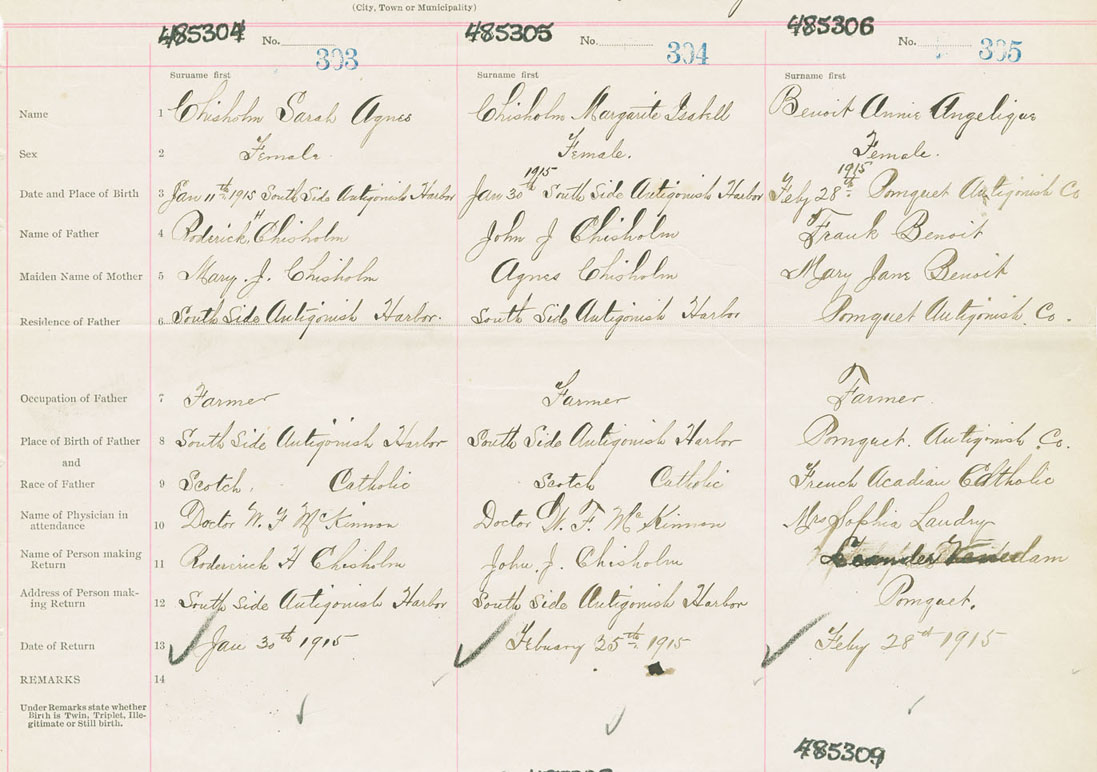 (City, Town or Municipality)
485304 485305 485306
No. 303 No. 304 No. 305
Surname first Surname first Surname first
Name 1 Chisholm Sarah Agnes Chisholm Margarite Isabell Benoit Annie Angelique
Sex 2 Female. Female. Female.
1915 1915
Date and Place of Birth 3 Jan 11th 1915 South Side Antigonish Harbor Jan 30th South Side Antigonish Harbor Feby 28th Pomquet Antigonish Co
Name of Father 4 Roderick H Chisholm John J Chisholm Frank Benoit
Maiden Name of Mother 5 Mary. J. Chisholm Agnes Chisholm Mary Jane Benoit
Residence of Father 6 South Side Antigonish Harbor. South Side Antigonish Harbor Pomquet Antigonish Co.
Occupation of Father 7 Farmer Farmer Farmer.
Place of Birth of Father 8 South Side Antigonish Harbor South Side Antigonish Harbor Pomquet. Antigonish Co.
and
Race of Father 9 Scotch. Catholic Scotch Catholic French Acadian Catholic
Name of Physician in
attendance 10 Doctor W. F McKinnon Doctor W. F. McKinnon Mrs Sophia Landry
Name of Person making
Return 11 Roderick H Chisholm John. J. Chisholm
Address of Person mak-
ing Return 12 South Side Antigonish Harbor South Side Antigonish Harbor Pomquet.
Date of Return 13 Jan 30th 1915 Febuary 25th 1915 Feby 28th 1915
REMARKS 14
Under Remarks state whether
Birth is Twin, Triplet, Ille-
gitimate or Still birth.
485309